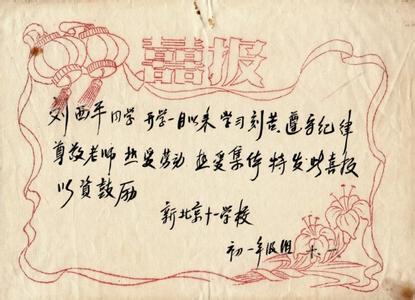 囍报
刘西平同学 开学一月以来 学习刻苦 遵守纪律
尊敬老师 热爱劳动 热爱集体 特发此喜报
以資鼓励
新北京十一学校
初一年级组 十.一.